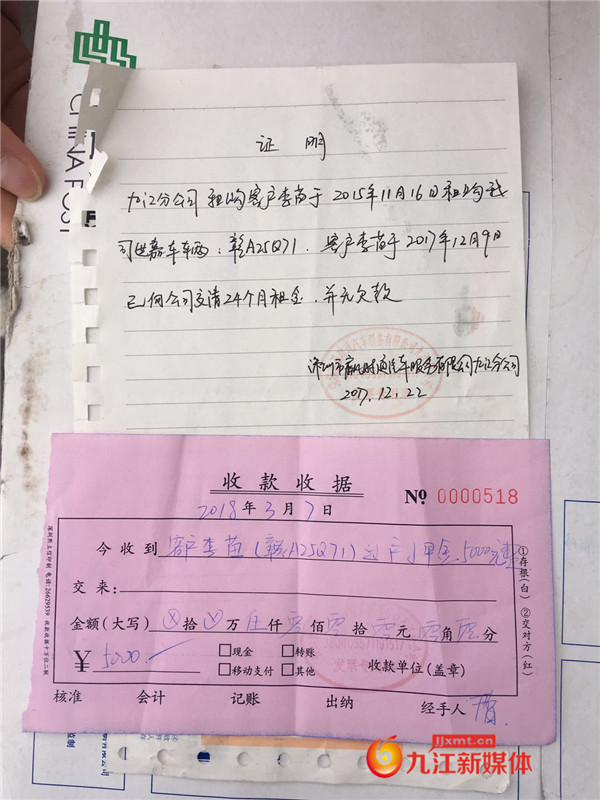 CHINA POST
证明
九江分公司 租购客户李苗于2015年11月16日租购我
司世嘉车车两:赣A25Q71. 客户李苗于2017年12月9日
已向公司交清24个月租金.并无欠款
深圳市赢时通汽车服务有限公司九江分公司
2017.12.22
收款收据
2018年3月7日
No 0000518
今收到 客户李苗(赣A25Q71)过户押金5000元整
交来:
金额(大写) ⊗拾⊗万伍仟零佰零拾零元零角零分
¥ 5000
□现金 □转账
□移动支付 □其他
收款单位(盖章)
核准 会计 记账 出纳 经手人
①存根(白) ②交对方(红)
电话:26629539 收款收据十万位二联
jjxmt.cn
九江新媒体